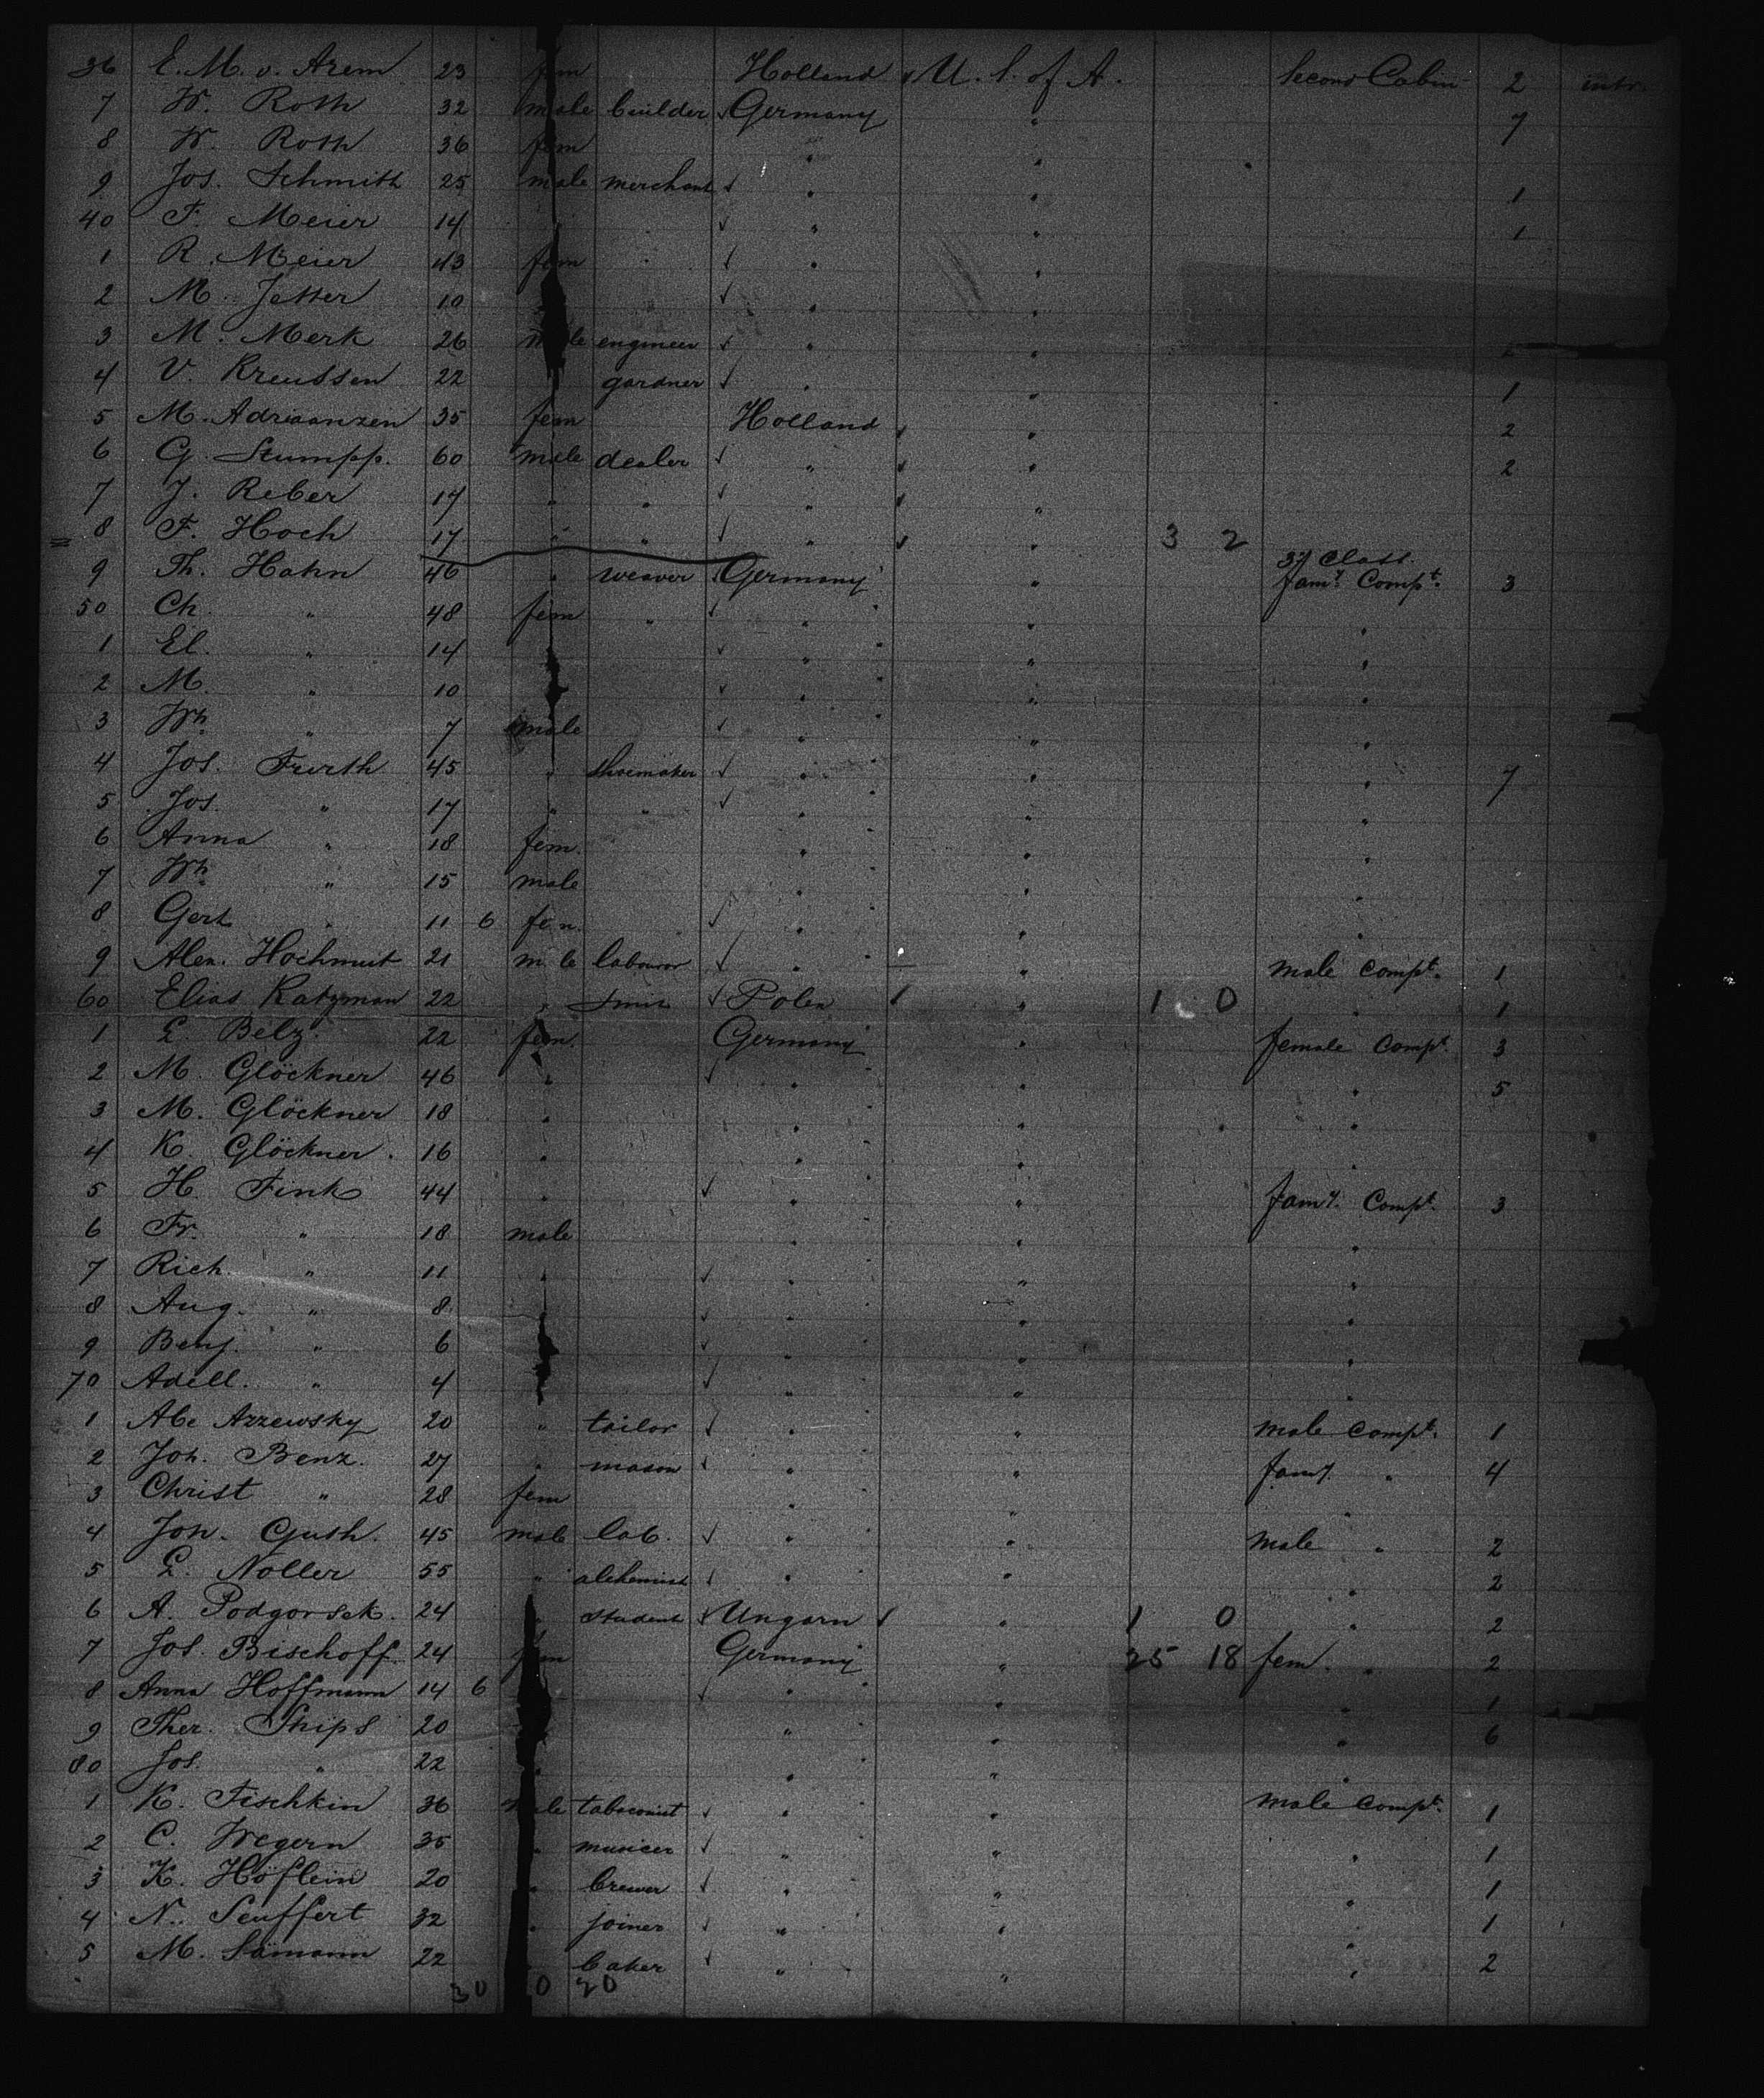 36 E. M. v. Arem 23 fem Holland U. S. of A. Second Cabin 2 intr.
7 W. Roth 32 male builder Germany " 7
8 W. Roth 36 fem " "
9 Jos. Schmith 25 male merchant " " 1
40 F. Meier 14 " " 1
1 R. Meier 43 fem " "
2 M. Jetter 10 " "
3 M. Merk 26 male engineer " " 2
4 V. Kreussen 22 gardner " " 1
5 M. Adriaanzen 35 fem Holland " 2
6 G. Stumpp. 60 male dealer " " 2
7 J. Reber 17 " " " "
8 F. Hoch 17 " " " " 3 2
9 Th. Hahn 46 " weaver Germany " 3d Class. Famy. Compt. 3
50 Ch. " 48 fem " " " "
1 El. " 14 " " "
2 M. " 10 " " "
3 Wh. " 7 male " " "
4 Jos. Furth 45 " shoemaker " " " 7
5 Jos. " 17 " " " " "
6 Anna " 18 fem. " " "
7 Wh. " 15 male " " "
8 Gert " 11 6 fem. " " "
9 Alex. Hochmut 21 male labouror " " male Compt. 1
60 Elias Katzman 22 " smit Polen " 1 0 " 1
1 E. Belz. 22 fem. Germany " female Compt. 3
2 M. Glöckner 46 " " " " 5
3 M. Glöckner 18 " " " "
4 K. Glöckner. 16 " " " "
5 H. Fink 44 " " " famy. Compt. 3
6 Fr. " 18 male " " "
7 Rich. " 11 " " " "
8 Aug. " 8 " " "
9 Benj. " 6 " " "
70 Adell. " 4 " " "
1 Abe Arzewsky 20 " tailor " " male Compt. 1
2 Joh. Benz. 27 " mason " " famy. " 4
3 Christ " 28 fem " " "
4 Joh. Guth. 45 male lab. " " male " 2
5 E. Noller 55 " alchemist " " " 2
6 A. Podgorsek. 24 " student Ungarn " 1 0 " 2
7 Jos. Bischoff. 24 fem Germany " 25 18 fem. " 2
8 Anna Hoffmann 14 6 " " " 1
9 Ther. Ships 20 " " " 6
80 Jos. " 22 " " " "
1 K. Fischkin 36 male tabaconist " " male Compt. 1
2 C. Wegern 35 " musicer " " " 1
3 K. Höflein 20 " brewer " " " 1
4 N. Seuffert 32 " joiner " " " 1
5 M. Sämann 22 baker " " " 2
30 0 20